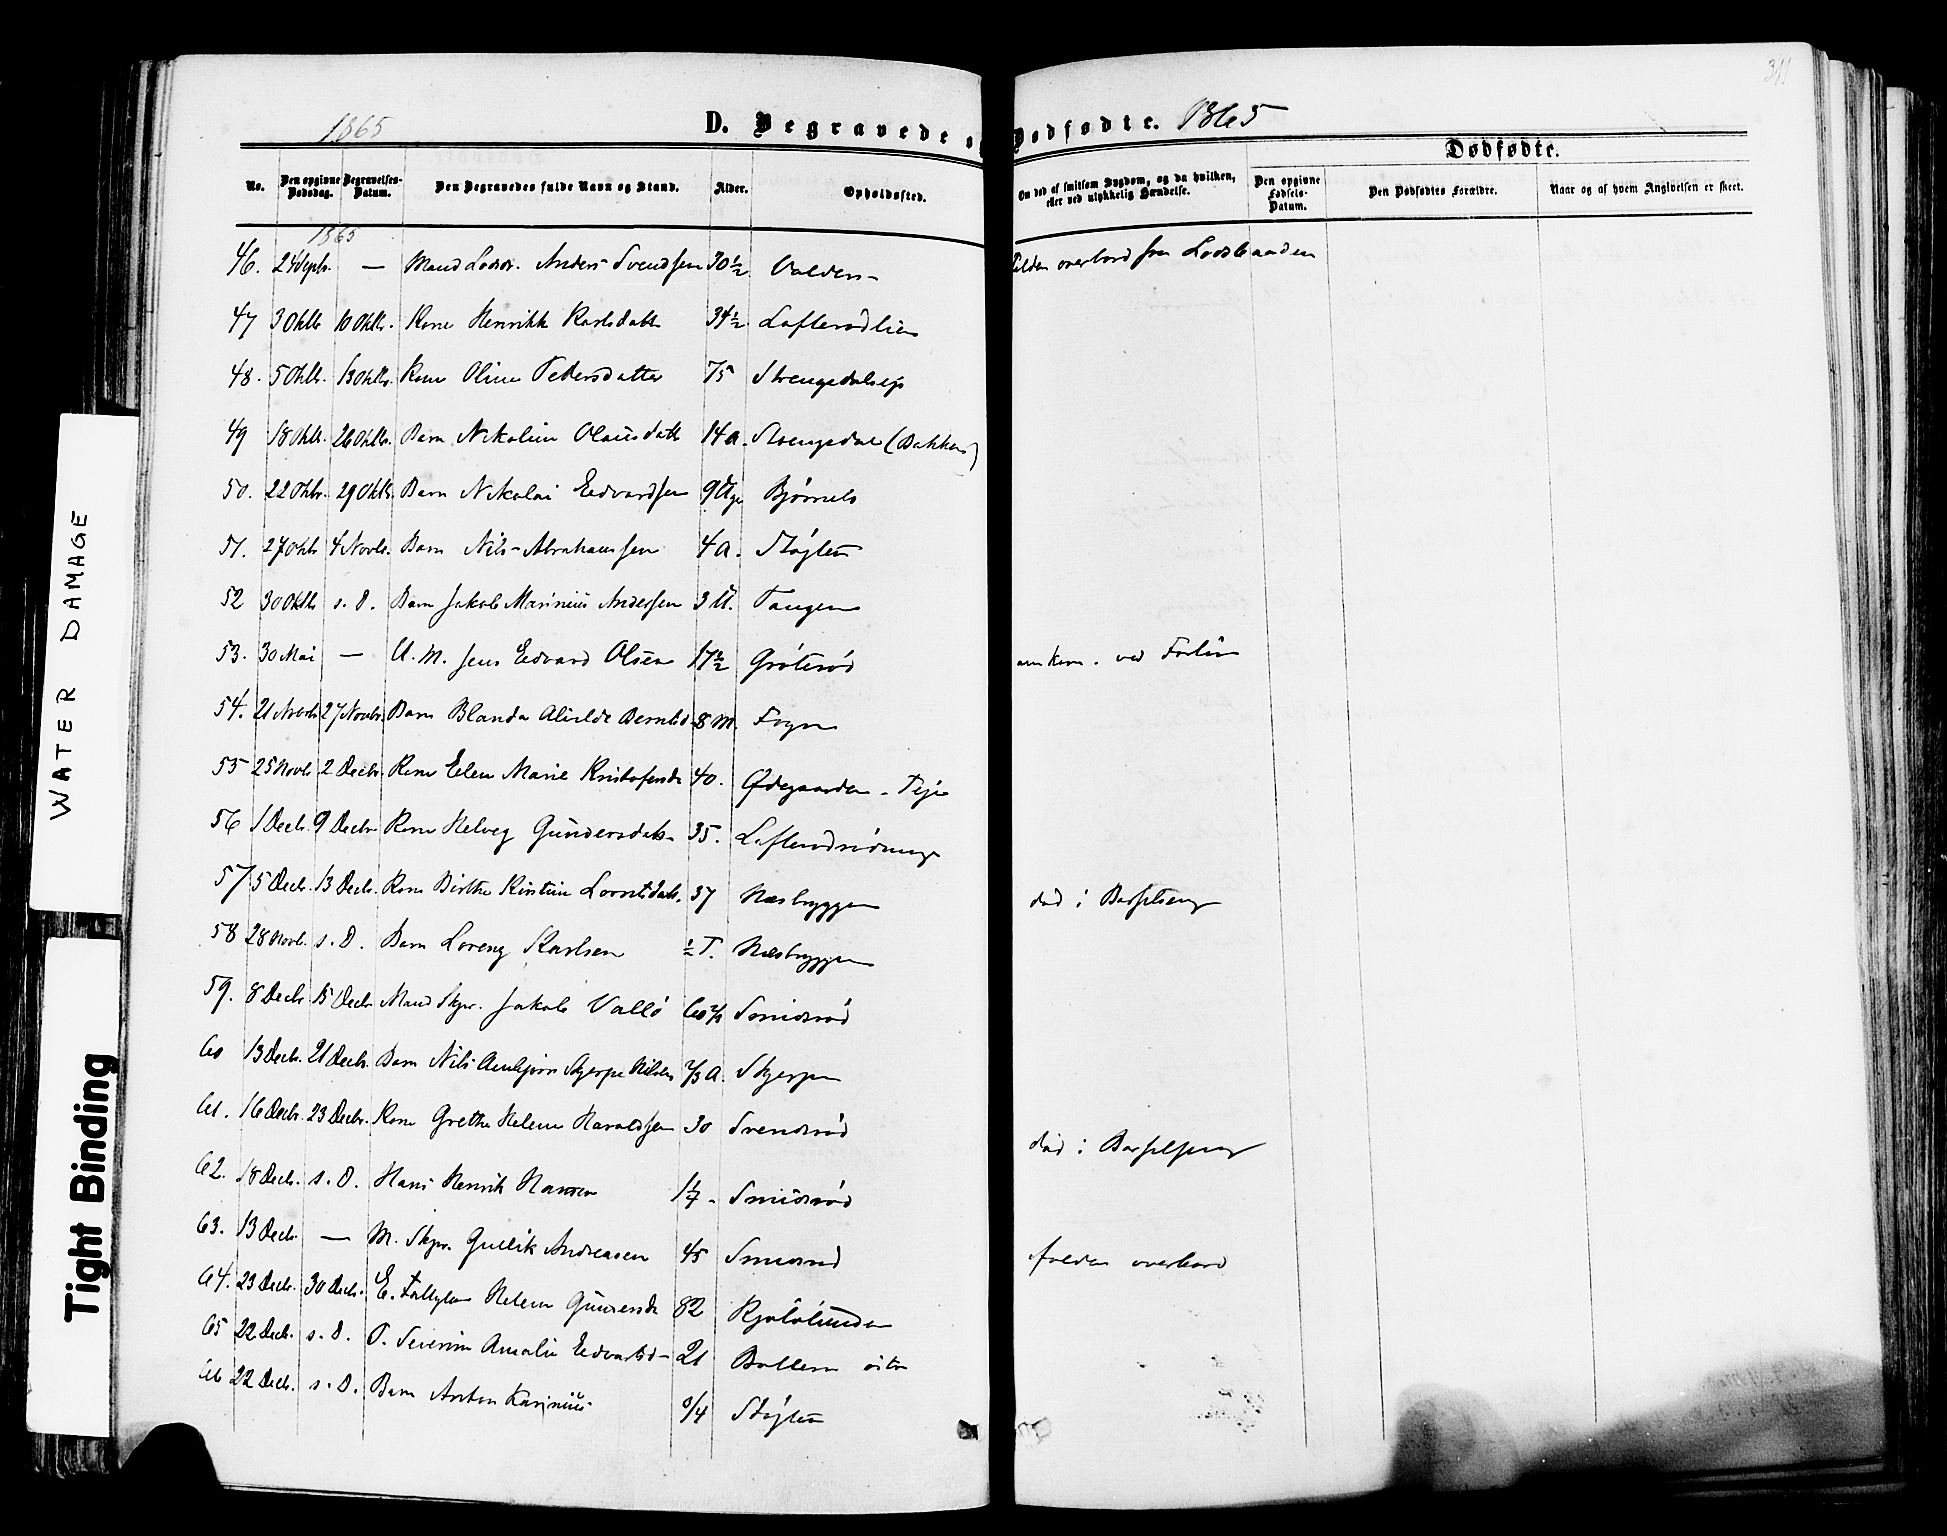 311
1865 D. Begravede o Dødfødte. 1865
Dødfødte.
No. Den opgivne Dødsdag. Begravelses-Datum. Den Begravedes fulde Navn og Stand. Alder. Opholdssted. Om død af smitsom Sygdom, og da hvilken, eller ved ulykkelig Hændelse. Den opgivne Fødsels-Datum. Den Dødfødtes Forældre. Naar og af hvem Angivelsen er skeet.
1865
46. 24 Septr. — Mand Lods. Anders Svendsen 30½ falden overbord fra Lodsbaaden
47 3 Oktb 10 Oktb. Kone Henrikke Karlsdatt 34½ Lofterødlien
48. 5 Oktb. 13 Oktb. Kone Oline Pettersdatter 75 Strengsdalseje
49 18 Oktb. 26 Oktb. Barn Nikoline Olausdatt 14 a. Strengsdal (Bakken)
50. 22 Oktbr. 29 Oktb. Barn Nikolai Edvardsen 9 Uge Bjønnes
51. 27 Oktb 4 Novb. Barn Nils Abrahamsen 4 a. Støiten
52 30 Oktb s. D. Barn Jakob Marinius Andersen 3 U. Tangen
53. 30 Mai — U. M. Jens Edvard Olsen 17½ Grøterød omkom. ved Forliis
54. 21 Novb. 27 Novbr. Barn Blanda Alvilde Berntsd. 8 M. Fogn
55 25 Novb. 2 Decbr. Kone Elen Marie Kristofersdr 40. Ødegaarden - Teje
56 1 Decb. 9 Decbr Kone Helveg Gundersdatt. 35. Lofterødrødning
57 5 Decb. 13 Decb. Kone Birthe Kirstine Lorntsdatt. 37 Næsbryggen død i Barselseng
58 28 Novb. s. D. Barn Lorenz Karlsen ½ T. Næsbryggen
59. 8 Decb 15 Decbr Mand Skpr. Jakob Vallø Smidsrød
60 13 Decb. 21 Decb. Barn Nils Skjerpe Nilsen ⅔ a. Skjerpe
61. 16 Decbr. 23 Decbr. Kone Grethe Helene Haraldsen 30 Svendsrød død i Barselseng
62. 18 Decb. s. D. Hans Henrik Hansen Smidsrød
63. 13 Decb. — M. Skpr. Gullik Andreasen 45 Smidsrød falden overbord
64. 23 Decb. 30 Decb. E. Fattiglem Helene Gundersdr 82 Kjølølunden
65 22 Decb. s. D. P. Severine Amalie Edvartsd 21 Bolleren
66 22 Decb. s. D. Barn Anton Karinius ¾ Støiten
WATER DAMAGE
Tight Binding